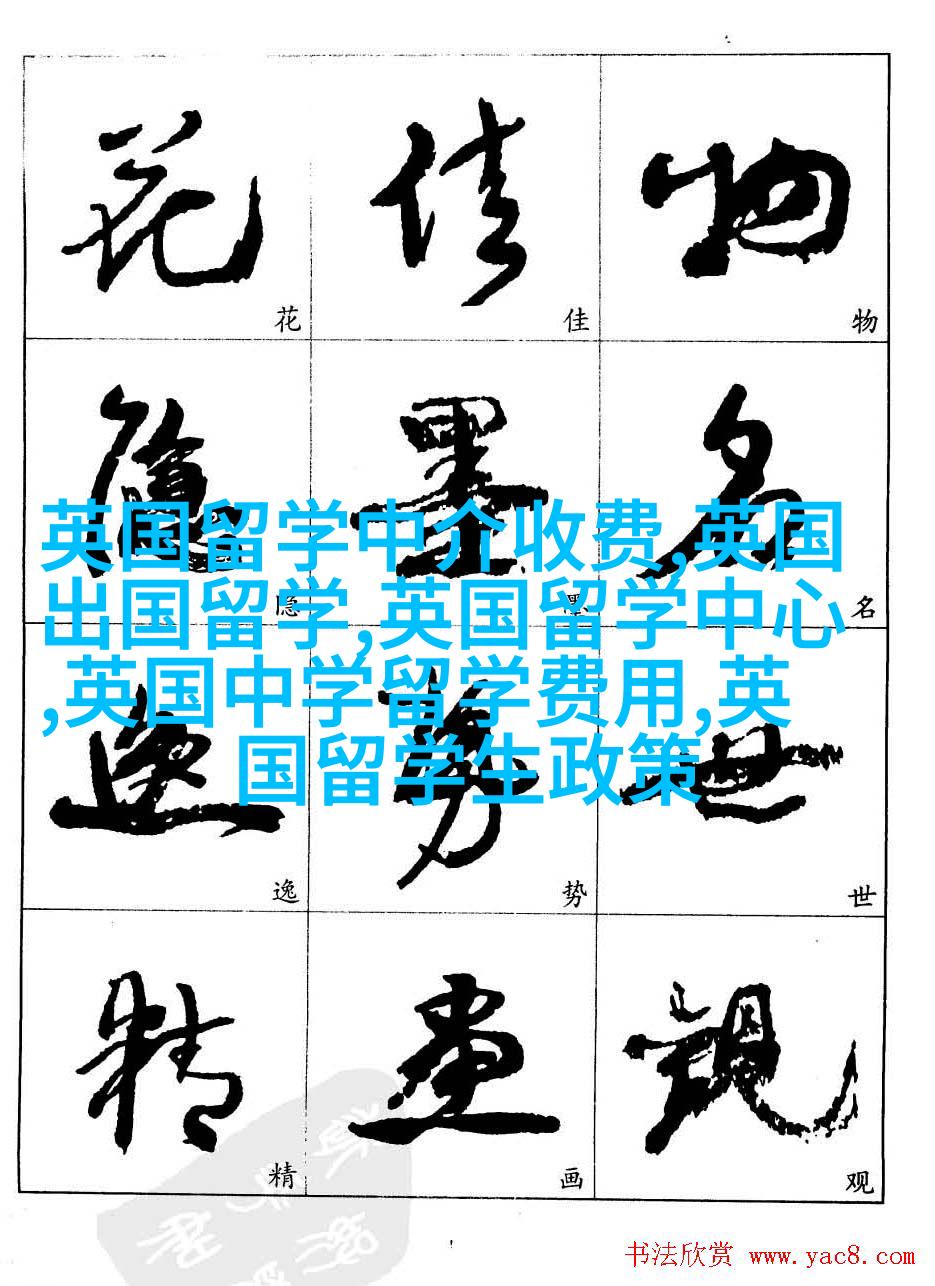 花 佳 物
花 佳 物
隐 墨 名
隐 墨 名
英国留学中介收费,英国
出国留学,英国留学中心
,英国中学留学费用,英
国留学生政策
逸 势 世
逸 势 世
精 画 观
精 画 观
书法欣赏 www.yac8.com